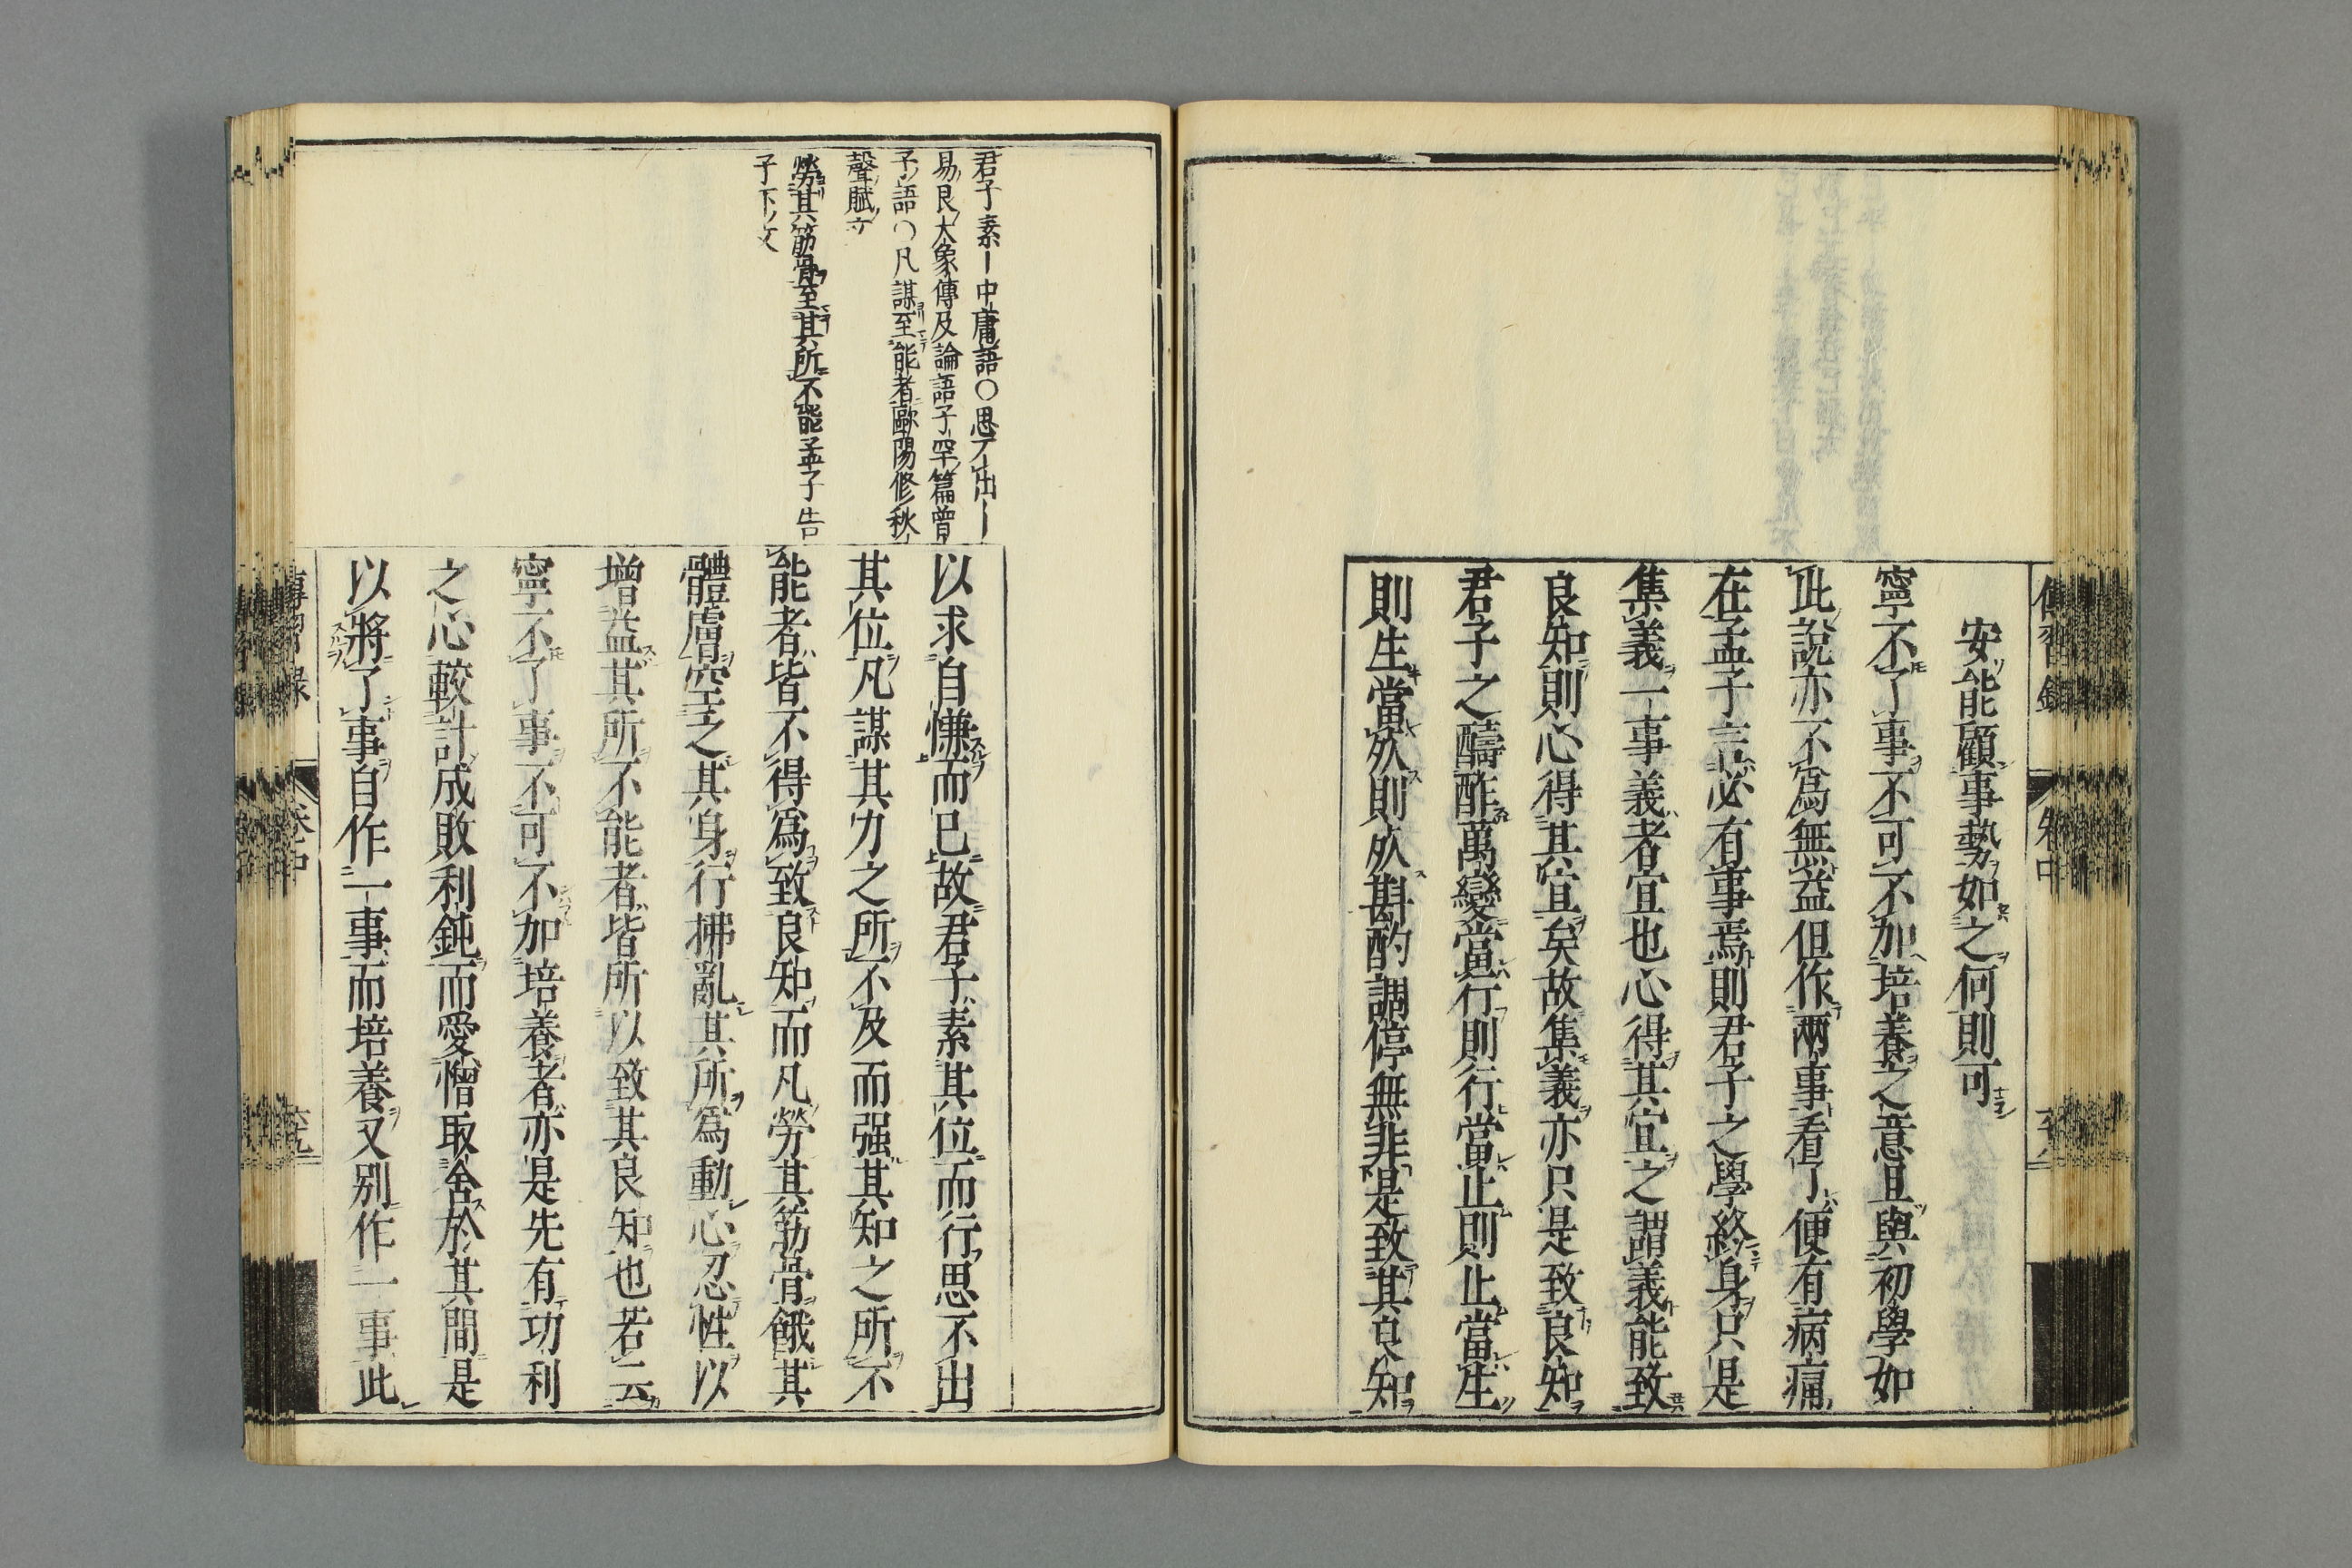 傳習錄
卷中
安能顧事勢如之何則可
寧不了事不可不加培養之意且與初學如
此說亦不爲無益但作兩事看了便有病痛
在孟子言必有事焉則君子之學終身只是
集義一事義者宜也心得其宜之謂義能致
良知則心得其宜矣故集義亦只是致良知
君子之醻酢萬變當行則行當止則止當生
則生當㱔則㱔斟酌調停無非是致其良知
君子素ー中庸語〇思不出ー
易艮大象傳及論語子罕篇曾
子語〇凡謀至能者歐陽修秋
聲賦
勞其筋骨至其所不能孟子告
子下
以求自慊而已故君子素其位而行思不出
其位凡謀其力之所不及而强其知之所不
能者皆不得爲致良知而凡勞其筋骨餓其
體膚空乏其身行拂亂其所爲動心忍性以
增益其所不能者皆所以致其良知也若云
寧不了事不可不加培養者亦是先有功利
之心較計成敗利鈍而愛憎取舍於其間是
以將了事自作一事而培養又别作一事此
傳習錄
卷中